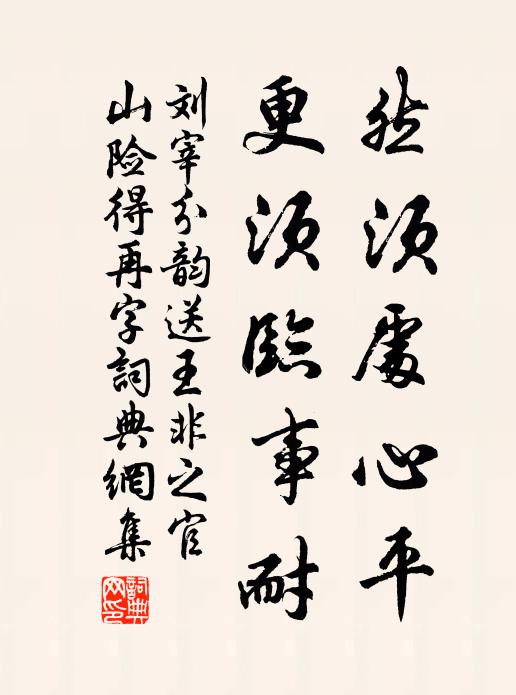 然须處心平
更须臨事耐
刘宰分韵送王非之官
山险得再字詞典網集
詞典
网印